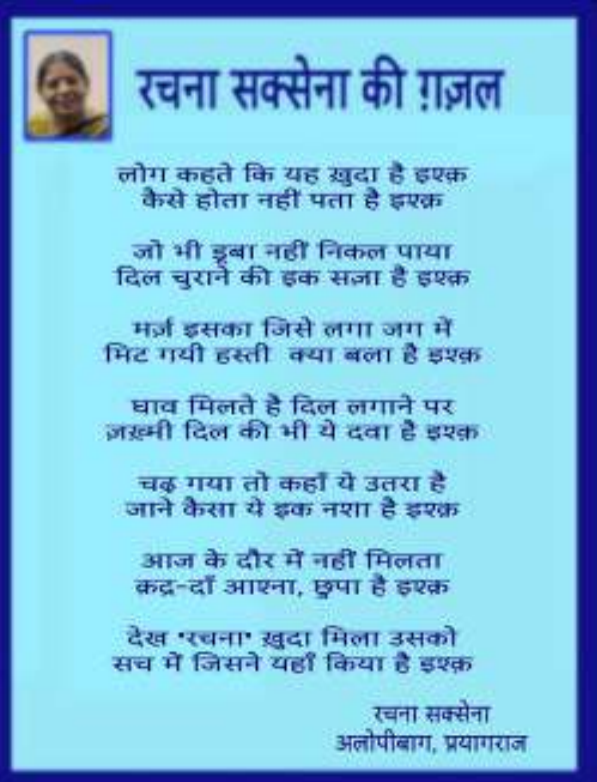 रचना सक्सेना की ग़ज़ल
लोग कहते कि यह ख़ुदा है इश्क़
कैसे होता नहीं पता है इश्क़
जो भी डूबा नहीं निकल पाया
दिल चुराने की इक सज़ा है इश्क़
मर्ज़ इसका जिसे लगा जग में
मिट गयी हस्ती क्या बला है इश्क़
घाव मिलते है दिल लगाने पर
ज़ख़्मी दिल की भी ये दवा है इश्क़
चढ़ गया तो कहाँ ये उतरा है
जाने कैसा ये इक नशा है इश्क़
आज के दौर में नहीं मिलता
क़द्र-दाँ आश्ना, छुपा है इश्क़
देख "रचना" ख़ुदा मिला उसको
सच में जिसने यहाँ किया है इश्क़
रचना सक्सेना
अलोपीबाग, प्रयागराज